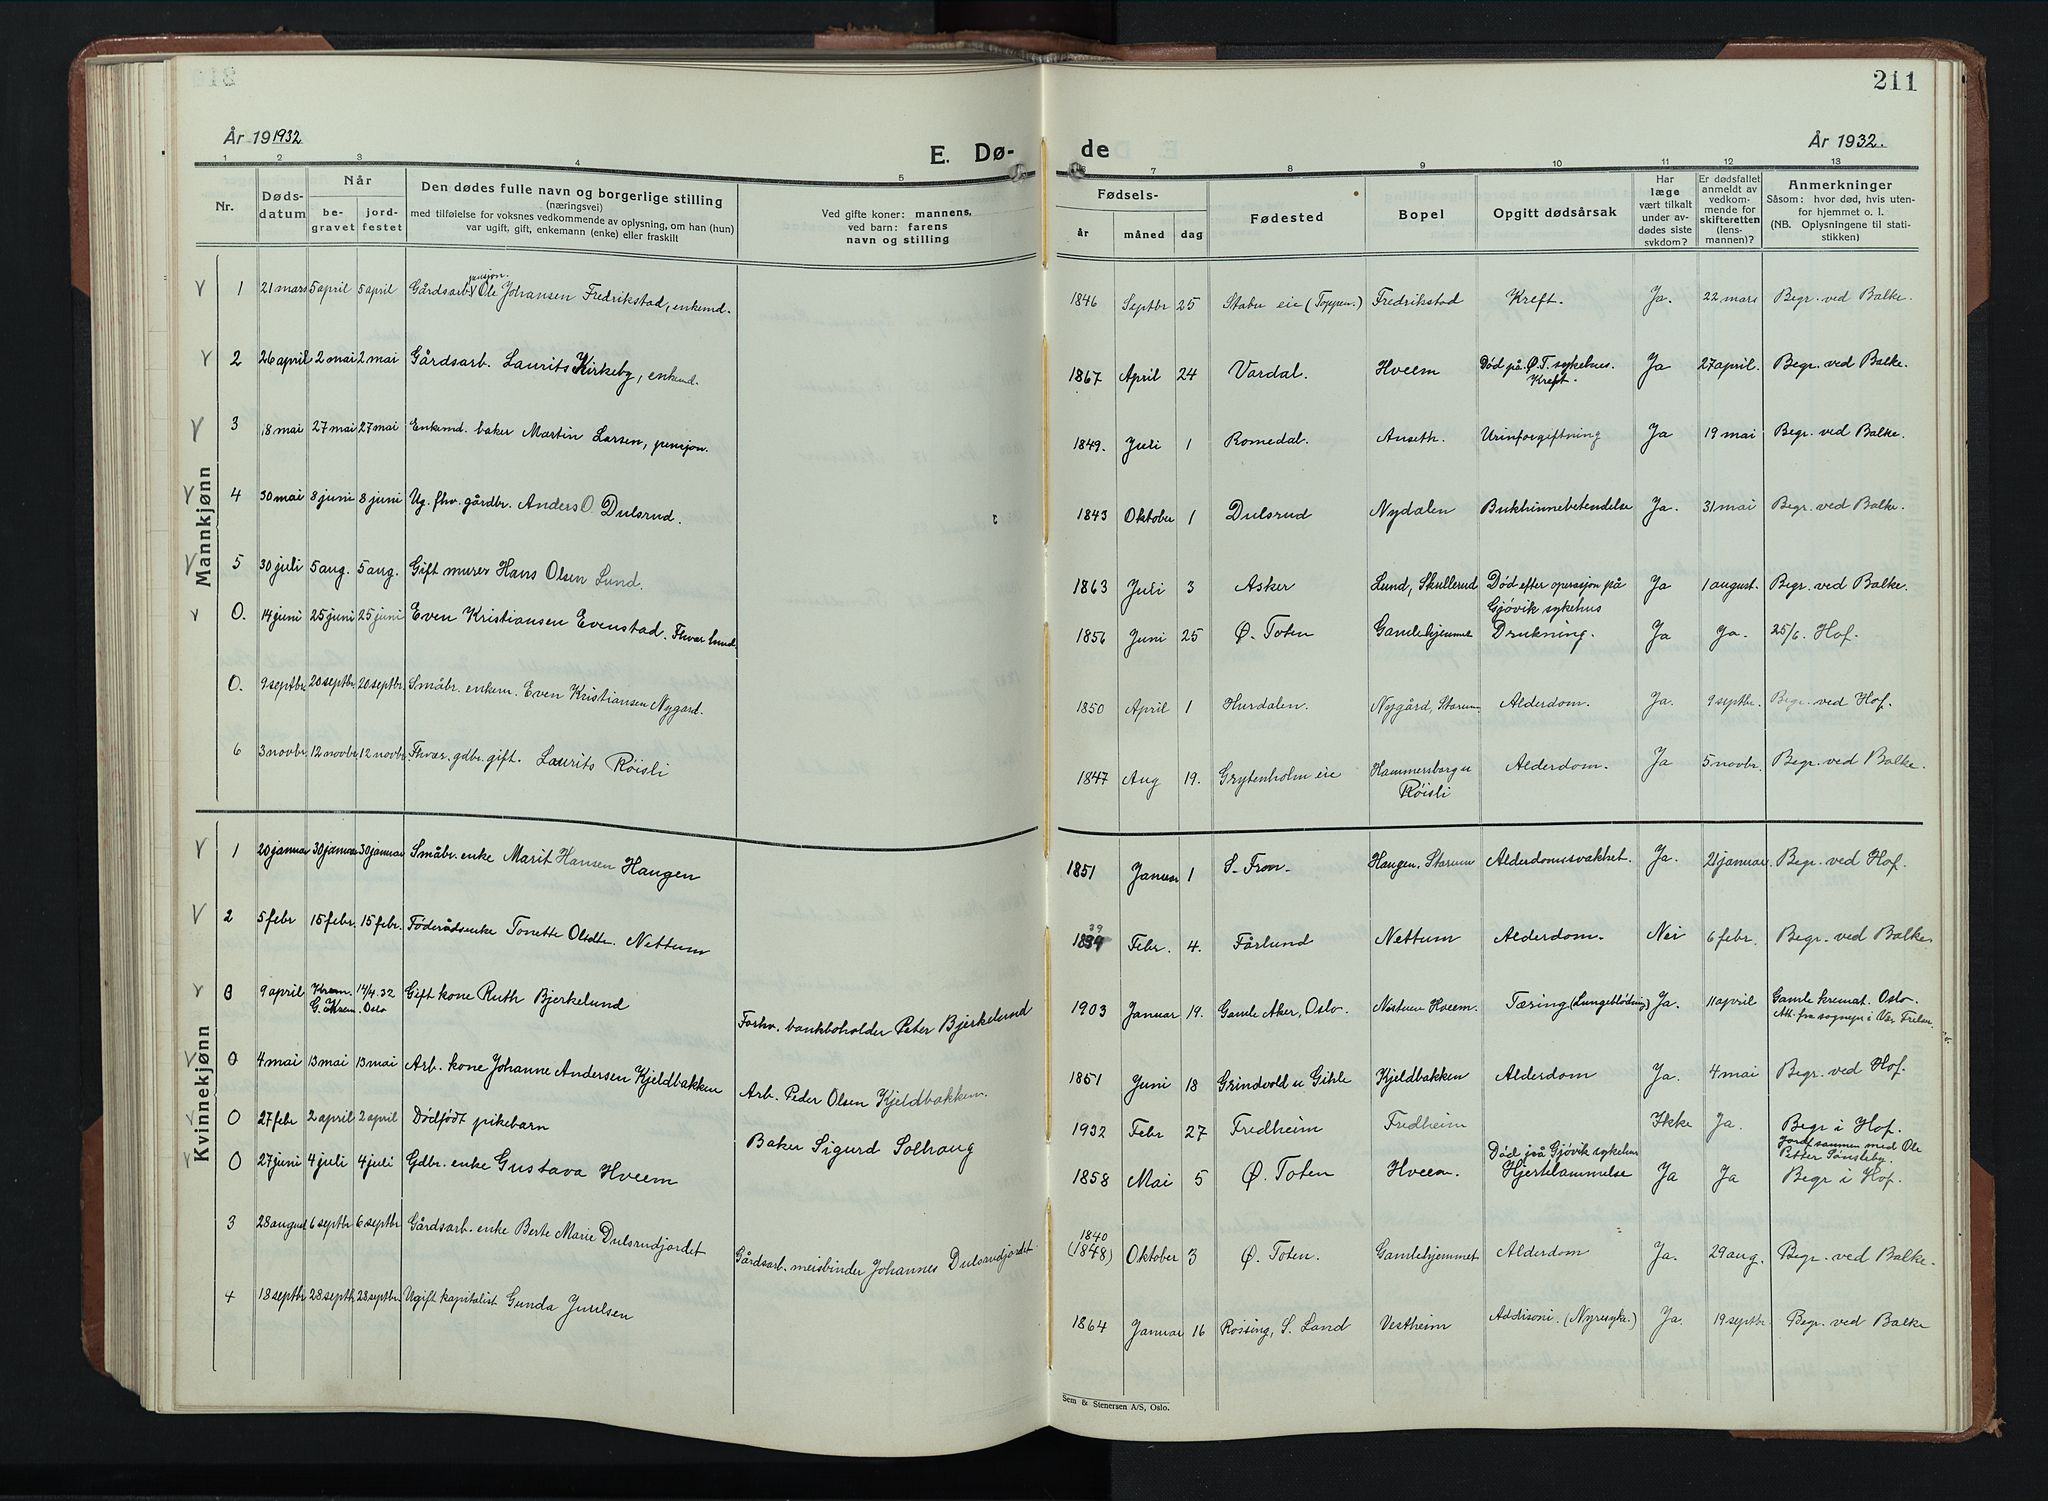 211
År 19 1932
E. Dø-
de
År 1932.
1 2 3 4 5 6 7 8 9 10 11 12 13
Nr.
Døds-
datum
Når
be-
gravet
jord-
festet
Den dødes fulle navn og borgerlige stilling
(næringsvei)
med tilføielse for voksnes vedkommende av oplysning, om han (hun)
var ugift, gift, enkemann (enke) eller fraskilt
Ved gifte koner: mannens,
ved barn: farens
navn og stilling
Fødsels-
år måned dag
Fødested
Bopel
Opgitt dødsårsak
Har
læge
vært tilkalt
under av-
dødes siste
sykdom?
Er dødsfallet
anmeldt av
vedkom-
mende for
skifteretten
(lens-
mannen)?
Anmerkninger
Såsom: hvor død, hvis uten-
for hjemmet o. l.
(NB. Oplysningene til stati-
stikken)
Mannkjønn
1 21 mars 5 april 5 april Gårdsarb. pensjon. Ole Johansen Fredrikstad, enkemd. 1846 Septbr 25 Stabu eie (Toppen.) Fredrikstad Kreft. Ja. 22 mars Begr. ved Balke.
2 26 april 2 mai 2 mai Gårdsarb. Laurits Kirkeby, enkemd. 1867 April 24 Vardal. Hveem Død på Ø.T. sykehus. Kreft. Ja 27 april. Begr. ved Balke.
3 18 mai 27 mai 27 mai Enkemd. baker Martin Larsen, pensjon. 1849. Juli 1 Romedal. Anseth. Urinforgiftning Ja 19 mai Begr. ved Balke.
4 30 mai 8 juni 8 juni Ug. fhv. gårdbr. Anders O. Dulsrud. 1843 Oktober 1 Dulsrud Nydalen Bukhinnebetendelse Ja. 31 mai Begr. ved Balke.
5 30 juli 5 aug. 5 aug. Gift murer Hans Olsen Lund. 1863 Juli 3 Asker Lund, Skullerud Død efter operasjon på Gjøvik sykehus Ja 1 august. Begr. ved Balke.
0. 14 juni 25 juni 25 juni Even Kristiansen Evenstad. 1856 Juni 25 Ø. Toten Gamlehjemmet Drukning. Ja Ja. 25/6. Hof.
0. 9 septbr 20 septbr. 20 septbr. Småbr. enkem. Even Kristiansen Nygard. 1850 April 1 Hurdalen. Nygård, Starum Alderdom. Ja. 9 septbr. Begr. ved Hof.
6 3 novbr. 12 novbr. 12 novbr. Fhvær. gdbr. gift. Laurits Röisli 1847 Aug 19. Grytenholm eie Hammersborg u Röisli Alderdom. Ja 5 novbr. Begr. ved Balke.
Kvinnekjønn
1 20 januar 30 januar 30 januar Småbr. enke Marit Hansen Haugen 1851 Januar 1 S. Fron. Haugen, Starum Alderdomssvakhet. Ja. 21 januar. Begr. ved Hof.
2 5 febr 15 febr. 15 febr. Föderådsenke Tonette Olsdtr. Nettum 1834 39 Febr. 4. Fårlund Nettum Alderdom. Nei 6 febr. Begr. ved Balke.
0 9 april Krem. G. Krem. 14/4. 32 Oslo Gift kone Ruth Bjerkelund Forhv. bankboholder Peter Bjerkelund 1903 Januar 19. Gamle Aker, Oslo. Nertun Hveem. Tæring (Lungeblödning) Ja. 11 april Gamle kremat. Oslo. Att. fra sognepr i Vår Frelser.
0 4 mai 13 mai 13 mai Arb. kone Johanne Andersen Kjeldbakken Arb. Peder Olsen Kjeldbakken. 1851 Juni 18 Grindvold u Gihle Kjeldbakken Alderdom Ja. 4 mai Begr. ved Hof.
0 27 febr 2 april 2 april Dödfödt pikebarn Baker Sigurd Solhaug 1932 Febr 27 Fredheim Fredheim Ikke Ja. Begr i Hof. Jordf sammen med Ole Petter Sönsteby.
0 27 juni 4 juli 4 juli Gdbr. enke Gustava Hveem 1858 Mai 5 Ø. Toten Hveem. Död på Gjøvik sykehus Hjertelammelse Ja Ja Begr i Hof.
3 28 august 6 septbr 6 septbr Gårdsarb. enke Berte Marie Dulsrudjordet Gårdsarb. meisbinder Johannes Dulsrudjordet. 1840 (1848) Oktober 3 Ø. Toten. Gamlehjemmet Alderdom Ja. 29 aug. Begr. ved Balke.
4 18 septbr 28 septbr 28 septbr. Ugift kapitalist Gunda Juulsen 1864 Januar 16 Røssing, S. Land Vestheim Addisoni. (Nyresyke.) Ja. 19 septbr. Begr. ved Balke
Sem & Stenersen A/S, Oslo.